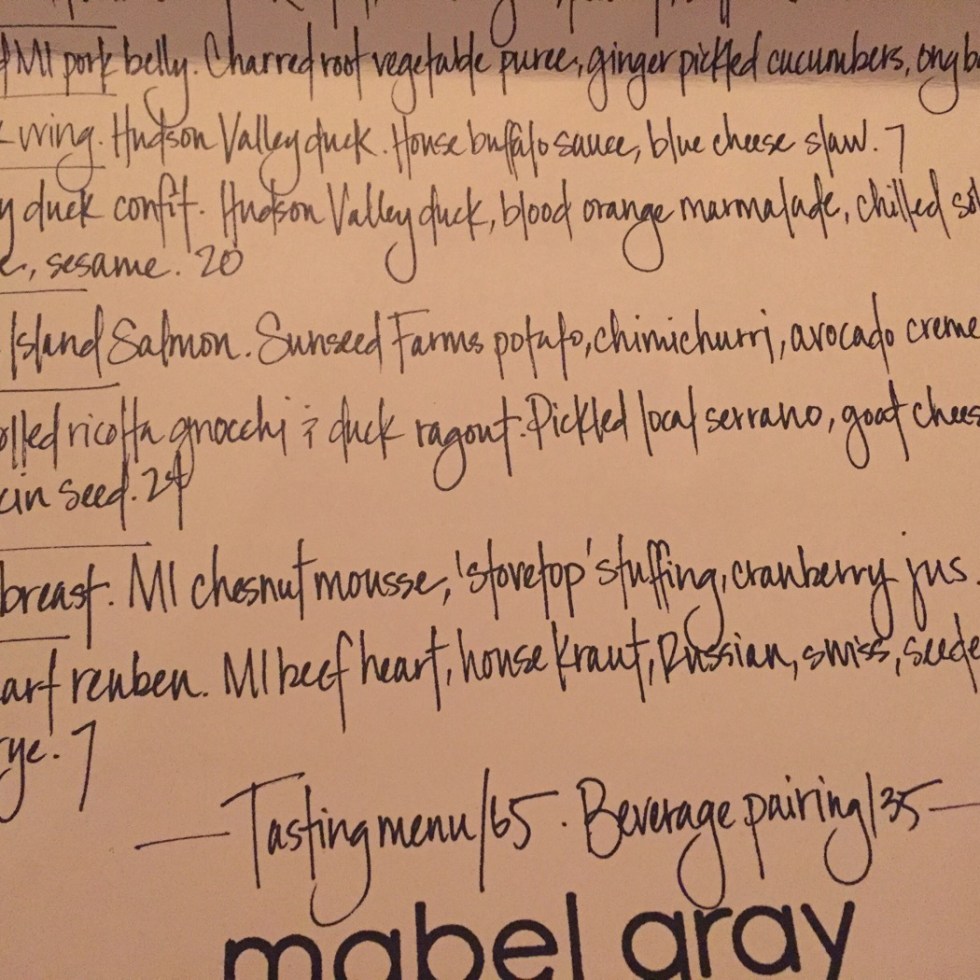 MI pork belly. Charred root vegetable puree, ginger pickled cucumbers,
wing. Hudson Valley duck. House buffalo sauce, blue cheese slaw. 7
y duck confit. Hudson Valley duck, blood orange marmalade, chilled
e, sesame. 20
Island Salmon. Sunseed Farms potato, chimichurri, avocado creme
olled ricotta gnocchi & duck ragout. Pickled local serrano, goat chees
in seed. 24
breast. MI chesnut mousse, 'stovetop' stuffing, cranberry jus.
art reuben. MI beef heart, house kraut, Russian, swiss, seede
rye. 7
— Tasting menu/65 . Beverage pairing/35 —
mabel gray